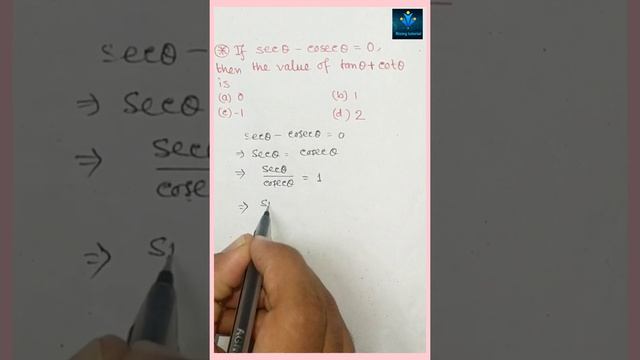 Rising tutorial
⊛ If secθ - cosecθ = 0,
then the value of tanθ + cotθ
is
(a) 0 (b) 1
(c) -1 (d) 2
secθ - cosecθ = 0
⇒ secθ = cosecθ
⇒ secθ/cosecθ = 1
⇒ si